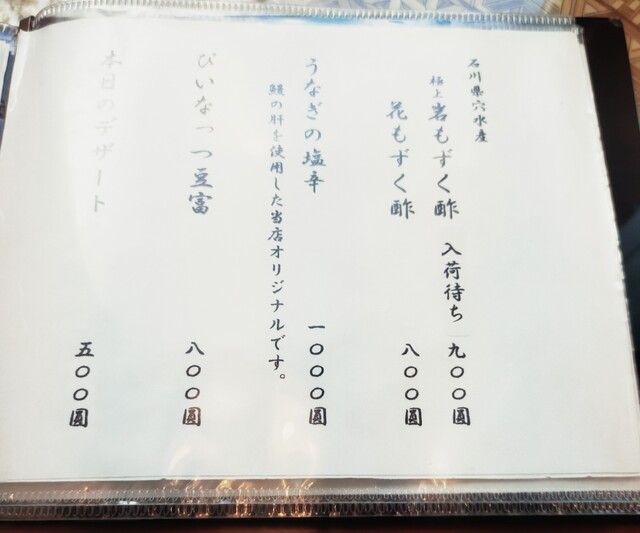 石川県穴水産
極上 岩もずく酢 入荷待ち 九〇〇圓
花もずく酢 八〇〇圓
うなぎの塩辛 一〇〇〇圓
鰻の肝を使用した当店オリジナルです。
ぴいなっつ豆富 八〇〇圓
本日のデザート 五〇〇圓